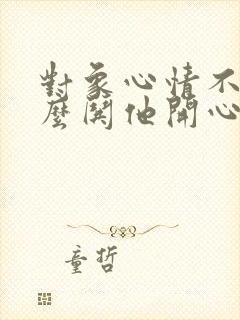 對象心情不
麼鬨他開心
童哲